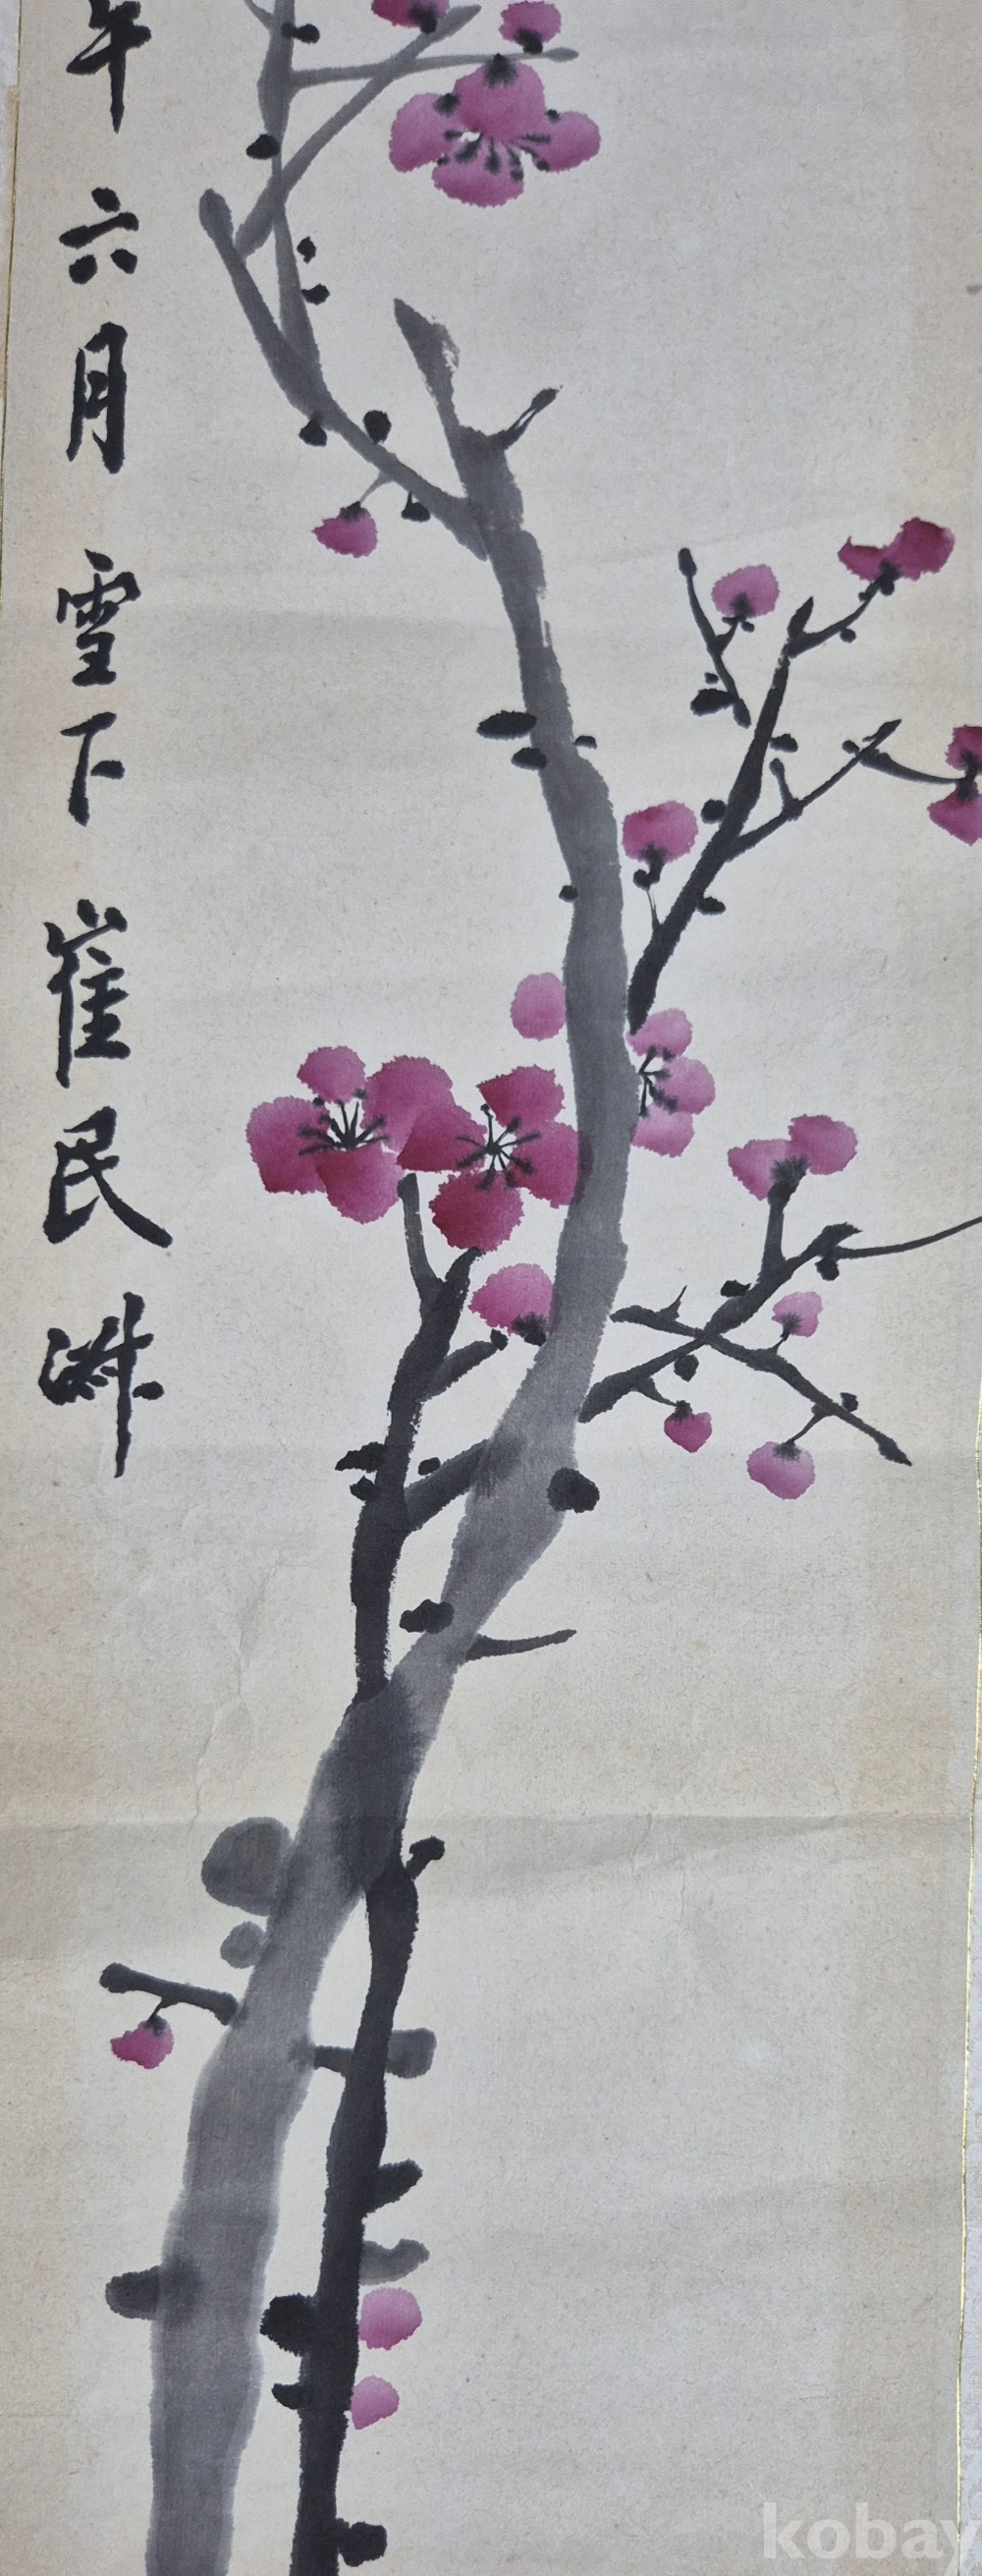 午六月雪下崔民洙
kobay